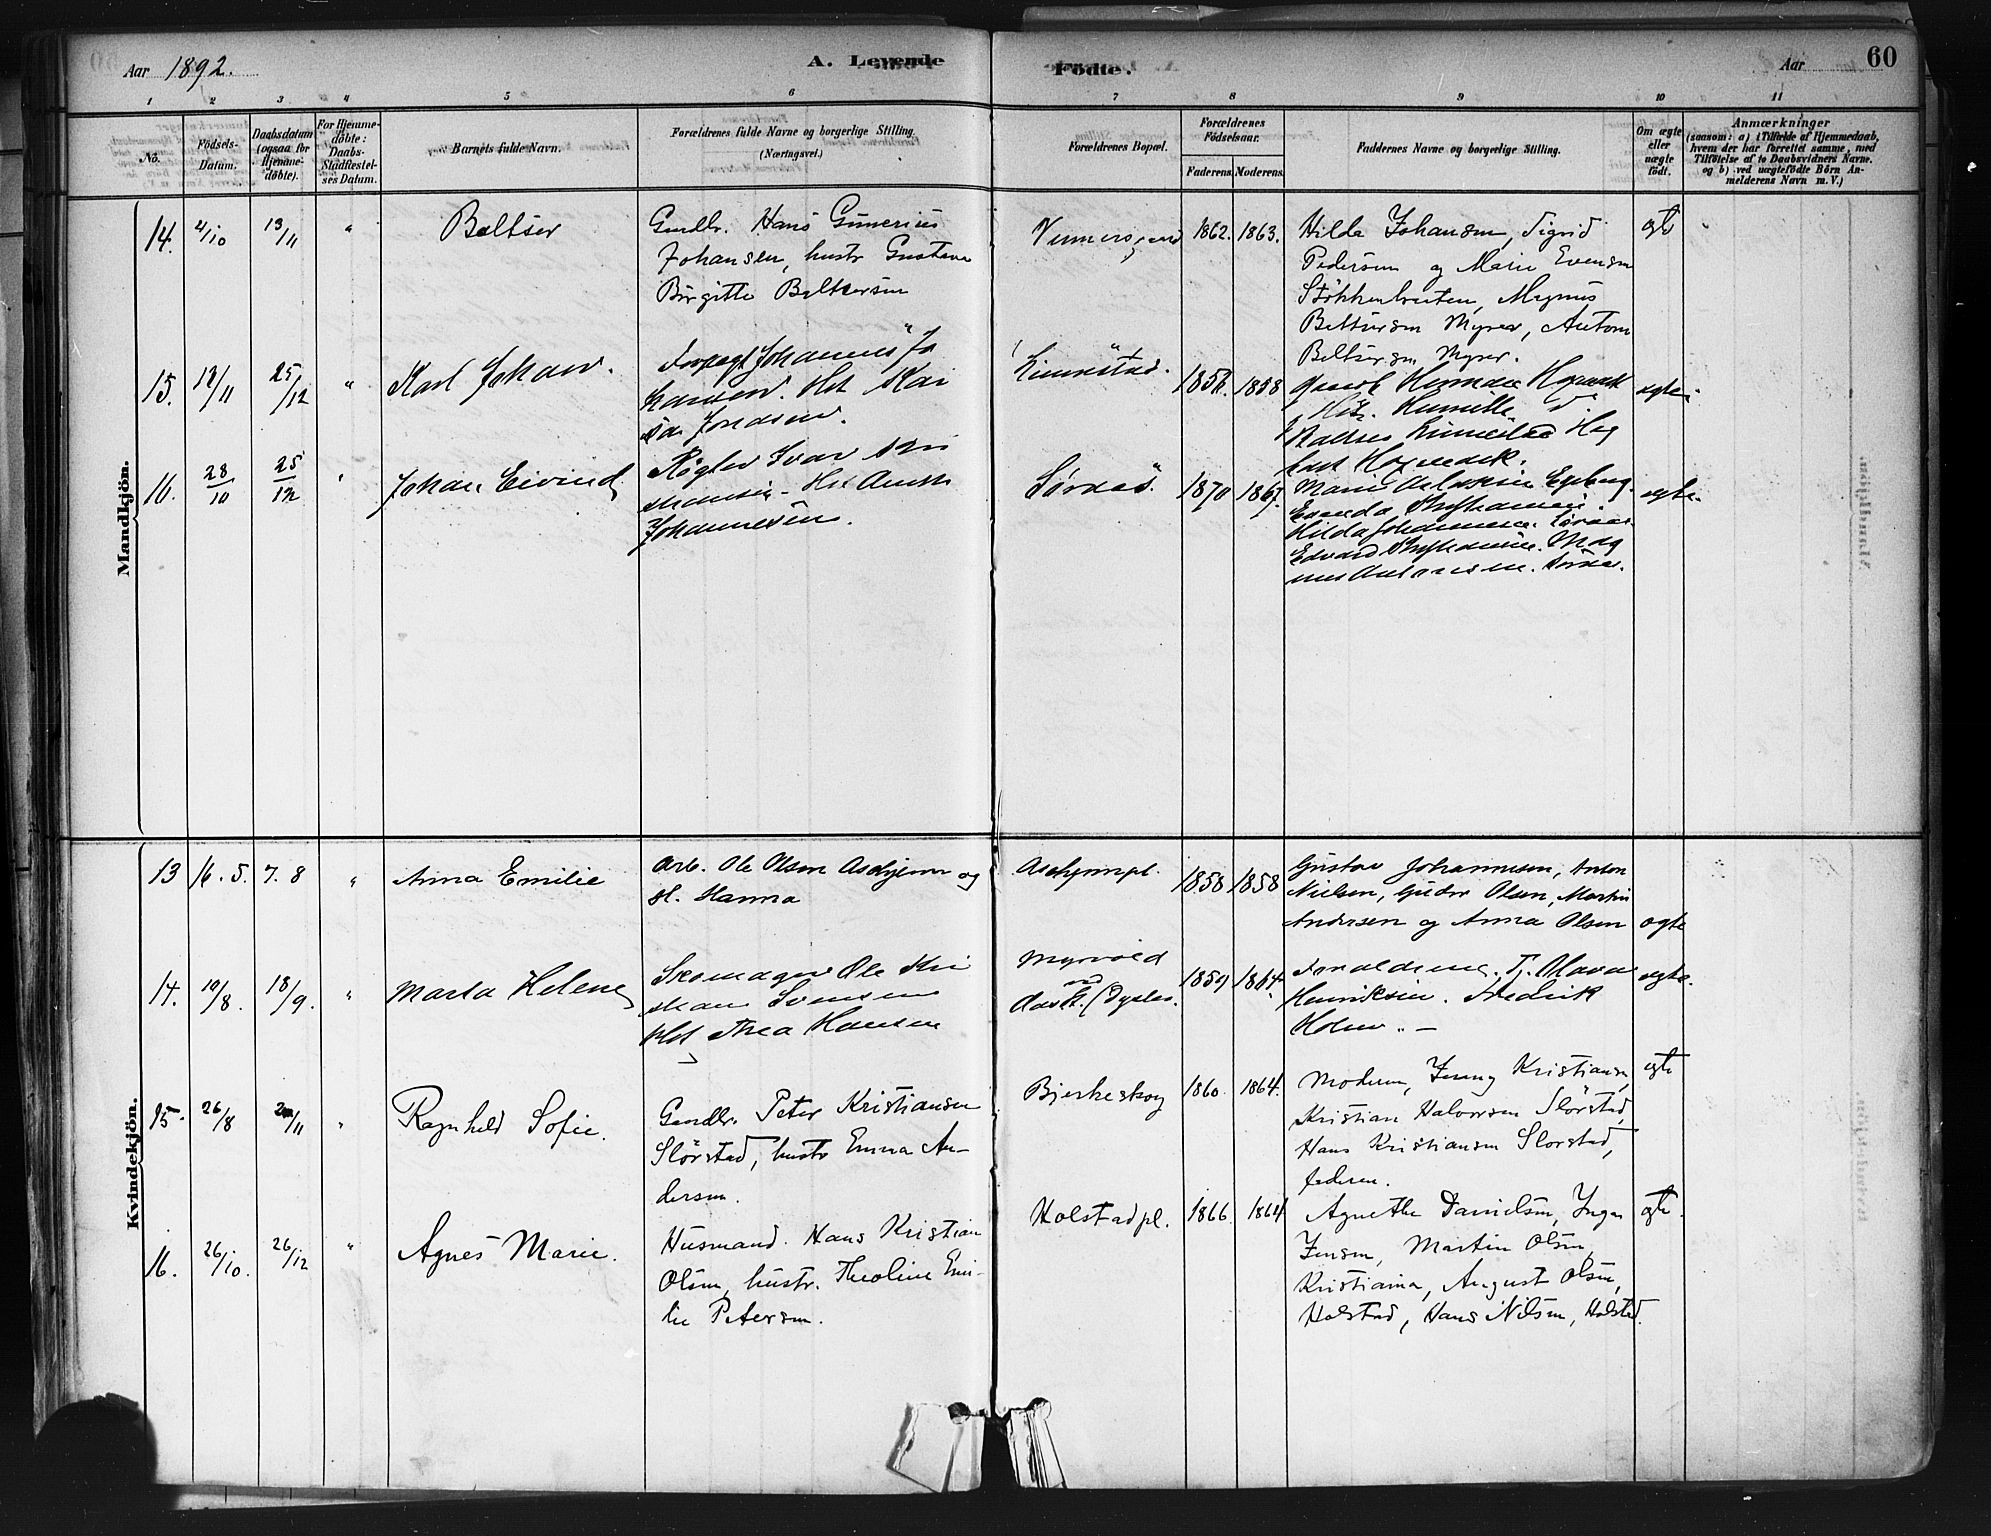 Aar 1892.
A. Levende
Födte.
Aar
60
1 2 3 4 5 6 7 8 9 10 11
No.
Födsels-
Datum.
Daabsdatum
(ogsaa for
Hjemme-
döbte).
For Hjemme-
döbte:
Daabs-
Stadfæstel-
ses Datum.
Barnets fulde Navn.
Forældrenes fulde Navne og borgerlige Stilling.
(Næringsvei.)
Forældrenes Bopæl.
Forældrenes
Födselsaar.
Faderens. Moderens.
Faddernes Navne og borgerlige Stilling.
Om ægte
eller
uægte
født.
Anmærkninger
(saasom: a) i Tilfælde af Hjemmedaab,
hvem der har forrettet samme, med
Tilföielse af to Daabsvidners Navne.
og b) ved uægtefödte Börn An-
melderens Navn m. V.)
Mandkjön.
14. 4/10 13/11 " Baltser
Gmdbr. Hans Gunerius
Johansen, hustr Gustava
Birgitte Baltsersen
1862. 1863.
Hilda Johansen, Sigrid
Pedersen og Marie Evensen
Magnus
Baltsersen Myrer, Anton
Baltsersen Myrer.
egte
15. 12/11 25/12 " Karl Johan.
Forpagt Johannes Jo
hansen. Hst
Kinnestad.
1858
egte
16. 28/10 25/12 " Johan Eivind
Røgter Ivar Kri
stiansen - Hst
Johannesen.
Sörnes.
1870 1867.
Hilda Johannesen.
Edvard Kristiansen. Mag
nus Antonsen. Sörnes.
egte
Kvindekjön.
13 16. 5. 7. 8 " Anna Emilie
Arb. Ole Olsen Askjem og
H. Hanna
Askjempl.
1858 1858
Gustav Johannesen, Anton
Nielsen, Gudor Olsen, Martin
Andersen og Anna Olsen
ægte
14. 10/8. 18/9. " Marta Helene
Skomager Ole Kri
stian Svensen
Hst Thea Hansen
Myrvold
1859 1864.
Forældrene. Tj. Olava
Henriksen. Fredrik
Holm. —
egte.
15. 26/8 /11 " Ragnhild Sofie.
Gmdbr. Peter Kristiansen
Slörstad, hustr Emma An-
dersen.
Bjerkeskog
1860. 1864.
Moderen, Jenny Kristiansen,
Kristian Halvorsen Slörstad,
Hans Kristiansen Slorstad,
faderen.
egte
16. 26/10. 26/12 " Agnes Marie.
Husmand. Hans Kristian
Olsen, hustr. Theoline Emi-
lie Petersen.
Holstadpl.
1866. 1864
Agnethe Danielsen, Inga
Jensen, Martin Olsen,
Kristiania, August Olsen,
Holstad, Hans Nilsen, Holstad.
egte.